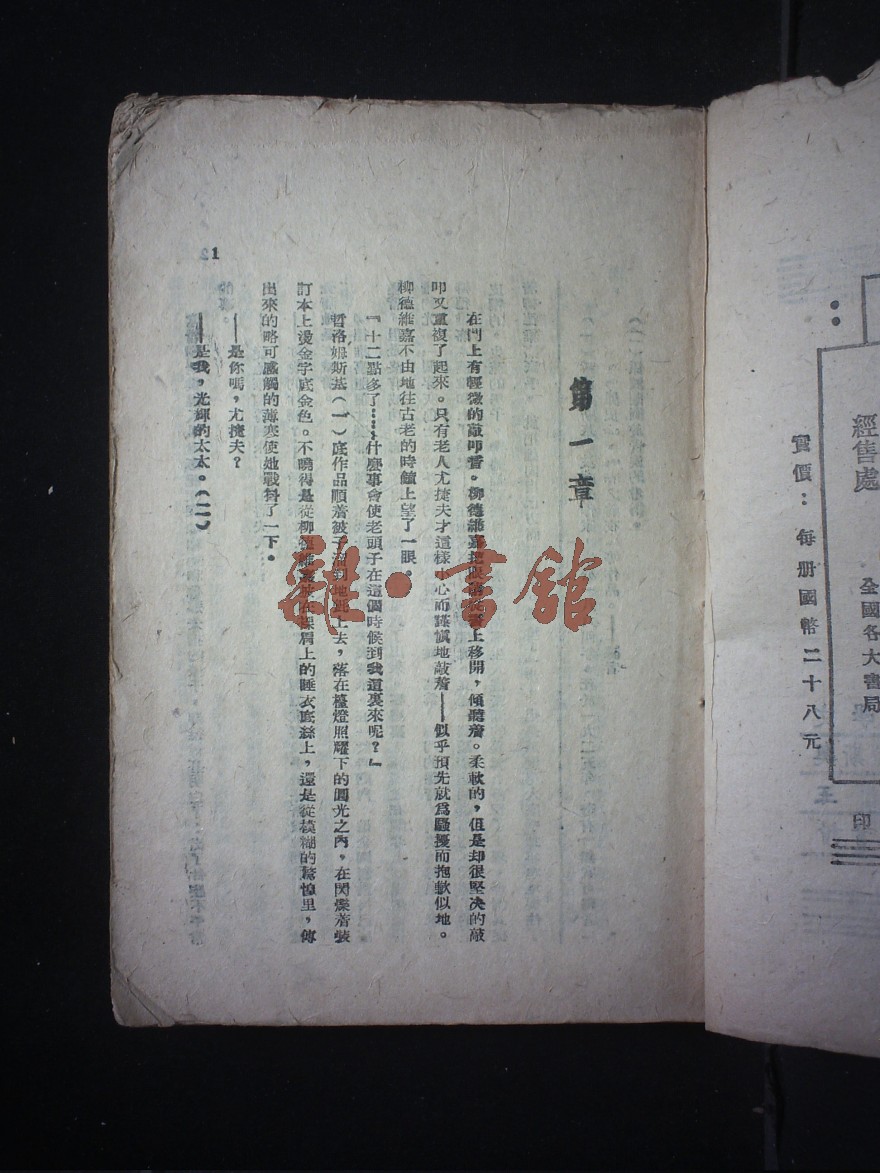 經售處
全國各大書局
實價：每册國幣二十八元
印
第一章
在門上有輕微的敲叩聲。柳德維嘉把眼睛從書上移開，傾聽着。柔軟的，但是却很堅决的敲
叩又重複了起來。只有老人尤捷夫才這樣小心而謹愼地敲着——似乎預先就爲騷擾而抱歉似地。
柳德維嘉不由地往古老的時鐘上望了一眼。
『十二點多了……什麼事會使老頭子在這個時候到我這裏來呢？』
哲洛姆斯基（一）底作品順着被子溜到地氈上去，落在檯燈照耀下的圓光之內，在閃爍着裝
訂本上燙金字底金色。不曉得是從柳德維嘉披在裸肩上的睡衣底絲上，還是從模糊的驚惶里，傳
出來的略可感觸的薄寒使她戰抖了一下。
——是你嗎，尤捷夫？
——是我，光輝的太太。（二）
1
雜·書館